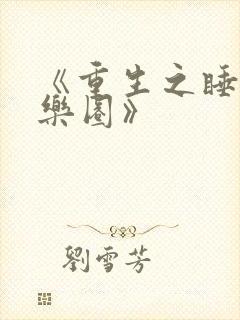 《重生之睡
樂園》
劉雪芳